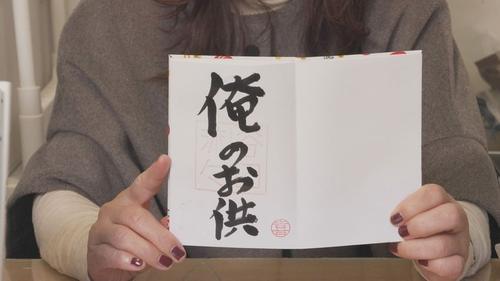 俺のお供